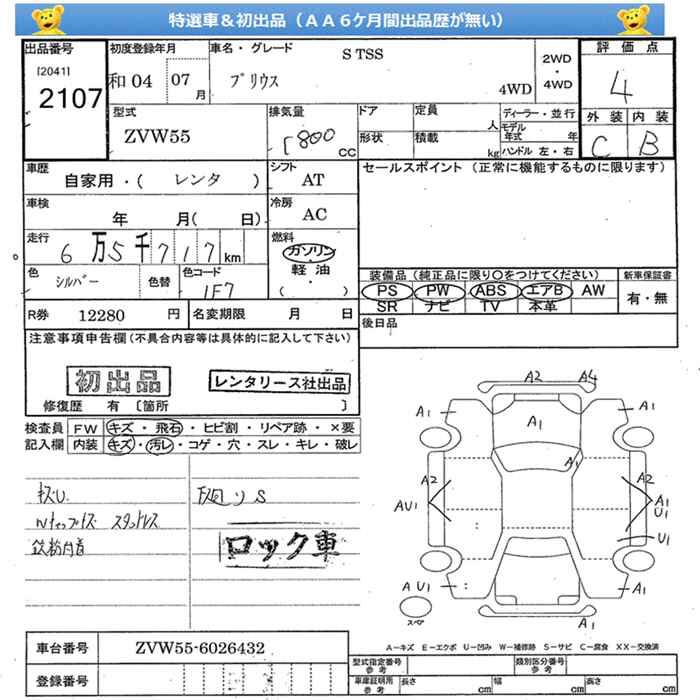 特選車＆初出品（ＡＡ６ケ月間出品歴が無い）
出品番号 初度登録年月 車名・グレード 2WD・4WD 評価点
[2041] S TSS
2107 和04 07月 プリウス 4WD 4
型式 排気量 ドア 定員 人 ディーラー・並行 外装 内装
ZVW55 1800CC 形状 積載 kg モデル年式 年 C B
ハンドル 左・右
車歴 シフト セールスポイント（正常に機能するものに限ります）
自家用・（ レンタ ） AT
車検 冷房
年 月（ 日） AC
走行 燃料
6万5千717km ガソリン・軽油
（・ ）
色 色替 色コード 装備品（純正品に限り〇をつけてください） 新車保証書
シルバー 1F7 PS PW ABS エアB AW 有・無
SR ナビ TV 本革
R券 12280 円 名変期限 月 日 後日品
注意事項申告欄（不具合内容等は具体的に記入して下さい）
初出品 レンタリース社出品
修復歴 有〔箇所 〕
検査員 FW キズ・飛石・ヒビ割・リペア跡・×要
記入欄 内装 キズ・汚レ・コゲ・穴・スレ・キレ・破レ
キズU 下廻りS
スタッドレス
ロック車
鉄粉付着
A2 A4
A1 A1 A1
A1
A2 A2
AU1 A1
U1
U1
A U1 A1
スペア A1
A－キズ E－エクボ U－凹み W－補修跡 S－サビ C－腐食 XX－交換済
車台番号 ZVW55-6026432 型式指定番号参考 類別区分番号参考
登録番号 車庫証明用参考 長さ cm 幅 cm 高さ cm